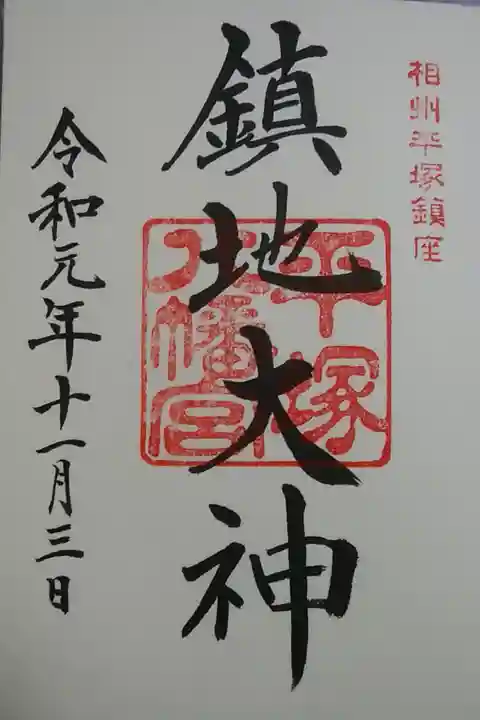 相州平塚鎮座
鎮地大神
平塚
八幡宮
令和元年十一月三日